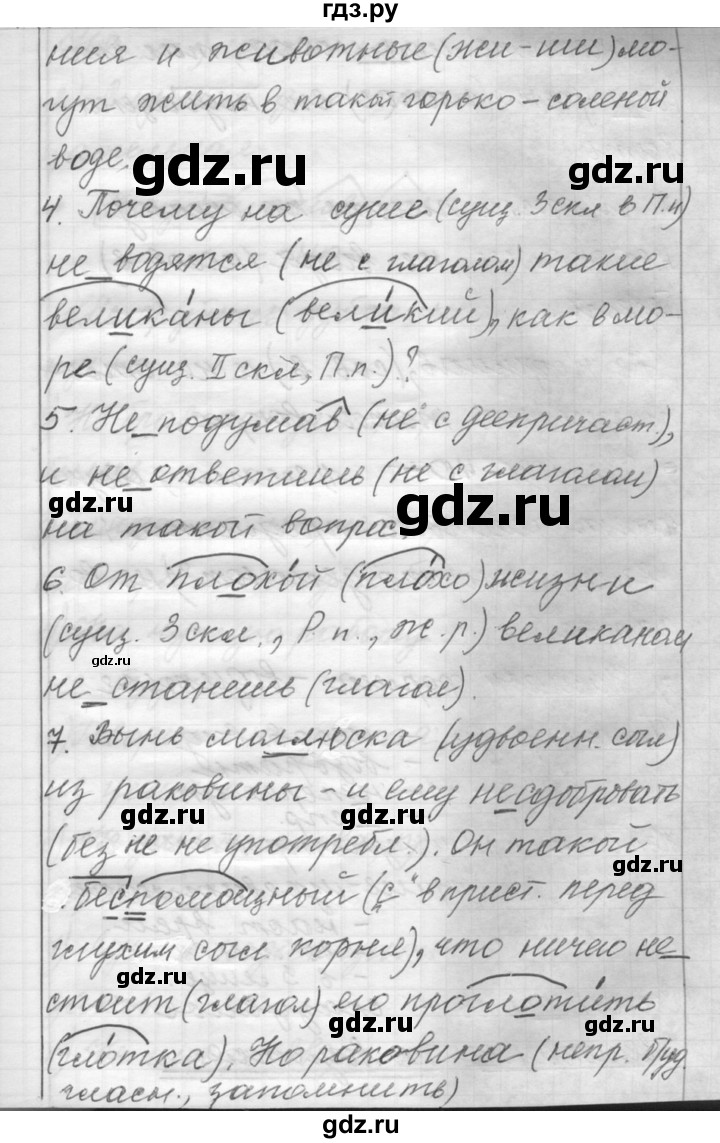 гдз.ру
ния и животные (жи-ши) мо-
гут жить в такой горько-соленой
воде.
gdz.ru
gdz.ru
4. Почему на суше (сущ. 3 скл в П.п)
не водятся (не с глаголом) такие
великаны (великий), как в мо-
ре (сущ. II скл, П.п.)?
5. Не подумав (не с деепричаст.),
и не ответишь (не с глаголом)
gdz.ru
gdz.ru
на такой вопрос
6. От плохой (плохо) жизни
(сущ. 3 скл., Р.п., ж.р.) великаном
gdz.ru
не станешь (глагол).
7. Вынь моллюска (удвоенн. согл)
из раковины - и ему несдобровать
gdz.ru
gdz.ru
(без не не употребл.). Он такой
gdz.ru
беспомощный ("с" в прист. перед
глухим согл корня), что ничего не
gdz.ru
стоит (глагол) его проглотить
gdz.ru
(глотка). Но раковина (непр.
gdz.ru
гласн., запомнить)
gdz.ru